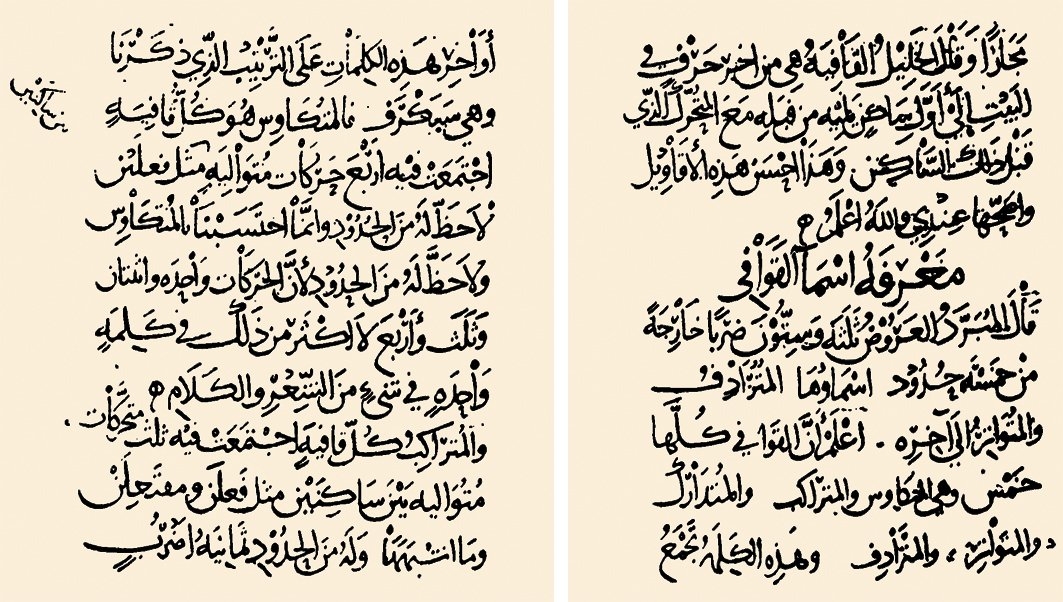 مَجَازًا وَقَالَ الخَلِيلُ القَافِيَة هي من اخر حَرْف في
البَيْت إلى أوّل ساكن يليه من قبله مع المتحرّك الذي
قبل ذلك السّاكن وهذا احسن هذه الأقاويل
واصحّها عندي والله اعلم ه
معرفة اسمآ القوافي
قال المبرّد العروض ثلثه وستّون ضربا خارجة
من خمسة حدود اسماوها المترادف
والمتواتر الى آخره . اعلم أنّ القوافي كلّها
خمس وهي المتكاوس والمتراكب والمتدارك
والمتواتر ، والمترادف وهذه الكلمة تجمع
أواخر هذه الكلمات على الترتيب الذي ذكرنا
وهي فالمتكاوس هو كلّ قافية
بين ساكنين
اجتمعت فيه اربع حركات متواليه مثل فعلتن
لا حظّ له من الحدود وانمّا احتسبنا بالمتكاوس
ولا حظّ له من الحدود لأنّ الحركات واحده واثنان
وثلث وأربع لا اكثر من ذلك في كلمة
واحده في شيء من الشّعر والكلام ه
والمتراكب كلّ قافية اجتمعت فيه ثلث متحركات
متواليه بين ساكنين مثل فعلن ومفتعلن
وما اشبههما وله من الحدود ثمانية اضرب